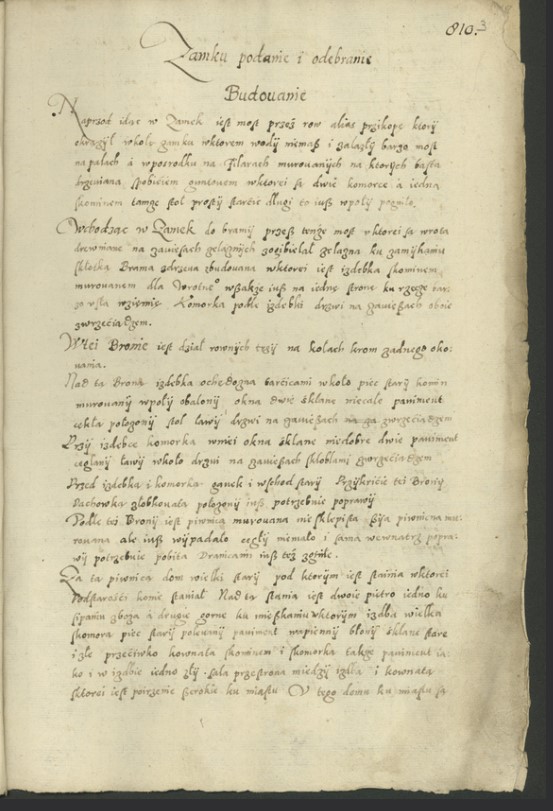 810. 3
Zamku podanie i odebranie
Budowanie
Naprzod idąc w Zamek iest most przes row alias przikopę ktorÿ
okrązÿł wkoło zamku wktorem wodÿ niemaß i zalazłÿ barzo most
na palach a wposrodku na Filarach murowanÿch na ktorÿch basta
drzewiana spobiciem guntowem wktorei są dwie komorce a iedna
skominem tamze stoł prostÿ długi to iuß wpołÿ pogniło.
Wchodząc w Zamek do bramÿ przeß tenże most v ktorei są wrota
drewniane na zawiesach zelaznÿch zelazna ku zamÿkaniu
skłotką Brama zdrzewa zbudowana wktorei iest izdebka skominem
murowanem dla Wrotne° wßakze iuß na iednę stronę ku rzecze
wziemię Komorka podle izdebki drzwi na zawießach oboie
zwrzeciądzem.
W tei Bronie iest dział rownÿch na kołach krom zadnego oko-
wania.
Nad tą Broną izdebka ochedozna tarcicami wkoło piec starÿ komin
murowanÿ wpołÿ obalonÿ okna dwie sklane niecałe pawiment
cegłą położonÿ stoł ławÿ drzwi na zawießach zwrzeciądzem
Przÿ izdebce komorka wniei okna sklane niedobre dwie pawiment
ceglanÿ ławÿ wkoło drzwi na zawießach skoblami zwrzeciądzem
Przed izdebką i komorką ganek i wschod starÿ Przÿkricie tei Bronÿ
Dachowką złobkowatą położonÿ iuß potrzebuie poprawÿ
Podle tei Bronÿ iest piwnica murowana niesklepista Sÿia piwniczna mu-
rowana ale iuß wÿpadało cegłÿ niemało i sama wewnątrz popra-
wÿ potrzebuie pobita Dranicami iuß teź zgniłe.
Za tą piwnicą dom wielki starÿ pod ktorÿm iest stainia wktorei
Podstarości konie staniał Nad tą stainią iest dwoie piętro iedno ku
sipaniu zboza a drugie gorne ku mieszkaniu wktorÿm izdba wielka
skomorą piec starÿ polewanÿ pawiment wapiennÿ błonÿ sklane stare
i złe przeciwko kownata skominem i skomorką takze pawiment ia-
ko i w izdbie iedno złÿ. Sala przestrona miedzÿ izdbą i kownatą
sktorei iest poirzenie ßerokie ku miastu V tego domu ku miastu są